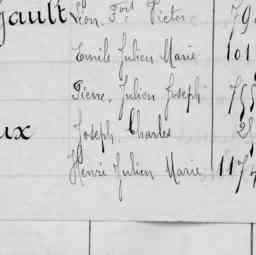 gault Léon Fort Victor 79
Emile Julien Marie 101
Pierre Julien Joseph 755
ux Joseph Charles 2
Henri Julien Marie 117